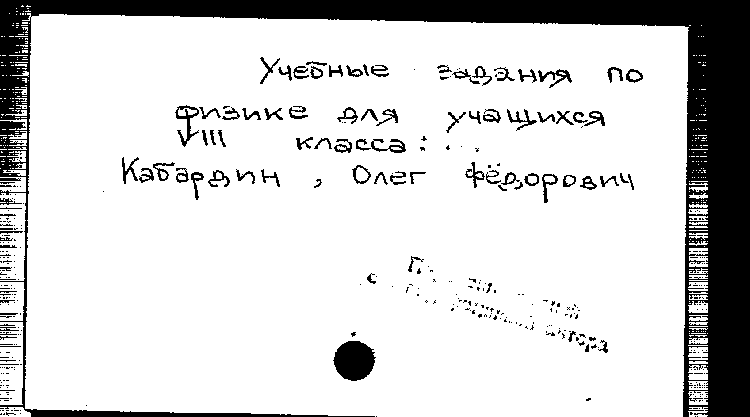 Учебные задания по
физике для учащихся
VIII класса: ...
Кабардин, Олег Фёдорович
автора